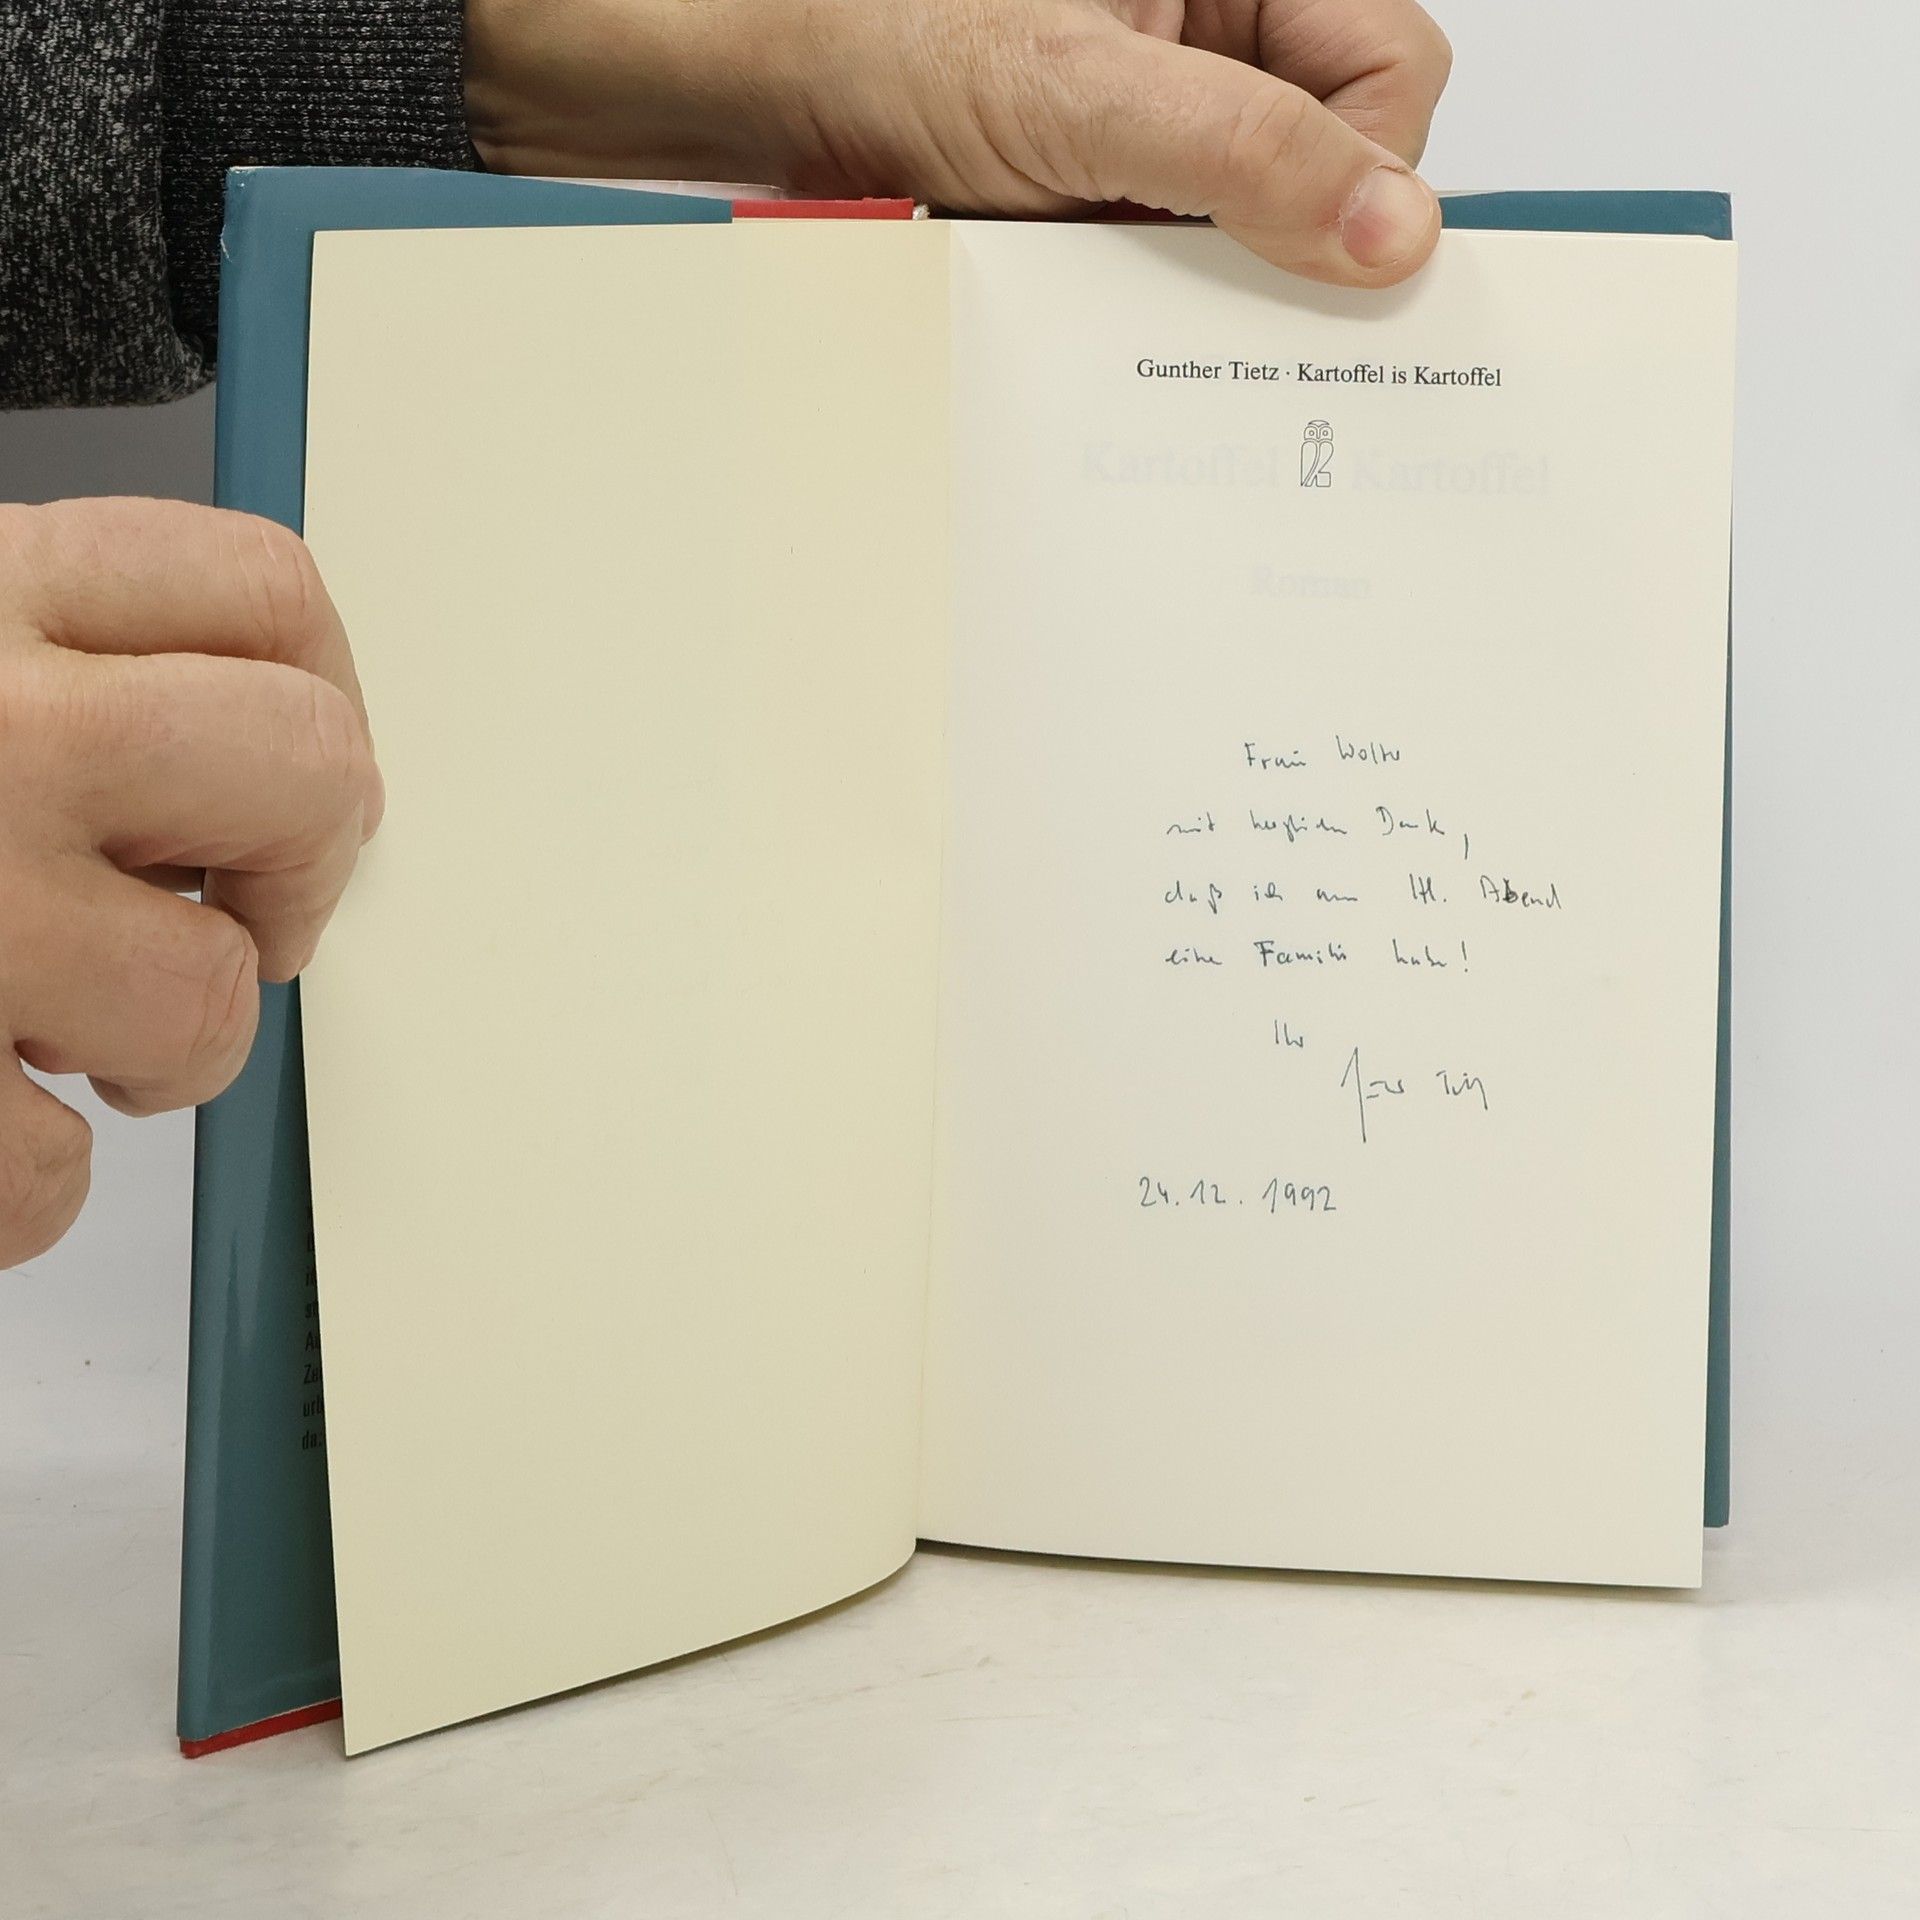 Gunther Tietz · Kartoffel is Kartoffel
Kartoffel Kartoffel
Roman
Frau Wolter
mit herzlichem Dank,
daß ich am Hl. Abend
eine Familie habe!
Ihr
Tietz
24.12.1992